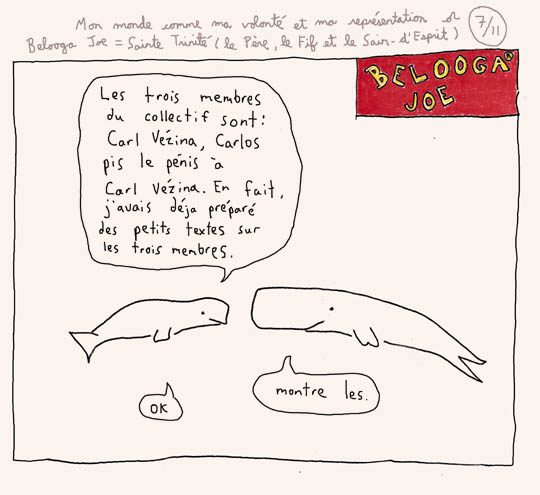 Mon monde comme ma volonté et ma représentation ou
Belooga Joe = Sainte Trinité (le Père, le Fif et le Sain-d'Esprit)
7/11
BELOOGA
JOE
Les trois membres
du collectif sont:
Carl Vézina, Carlos
pis le pénis à
Carl Vézina. En fait,
j'avais déja préparé
des petits textes sur
les trois membres.
montre les.
OK